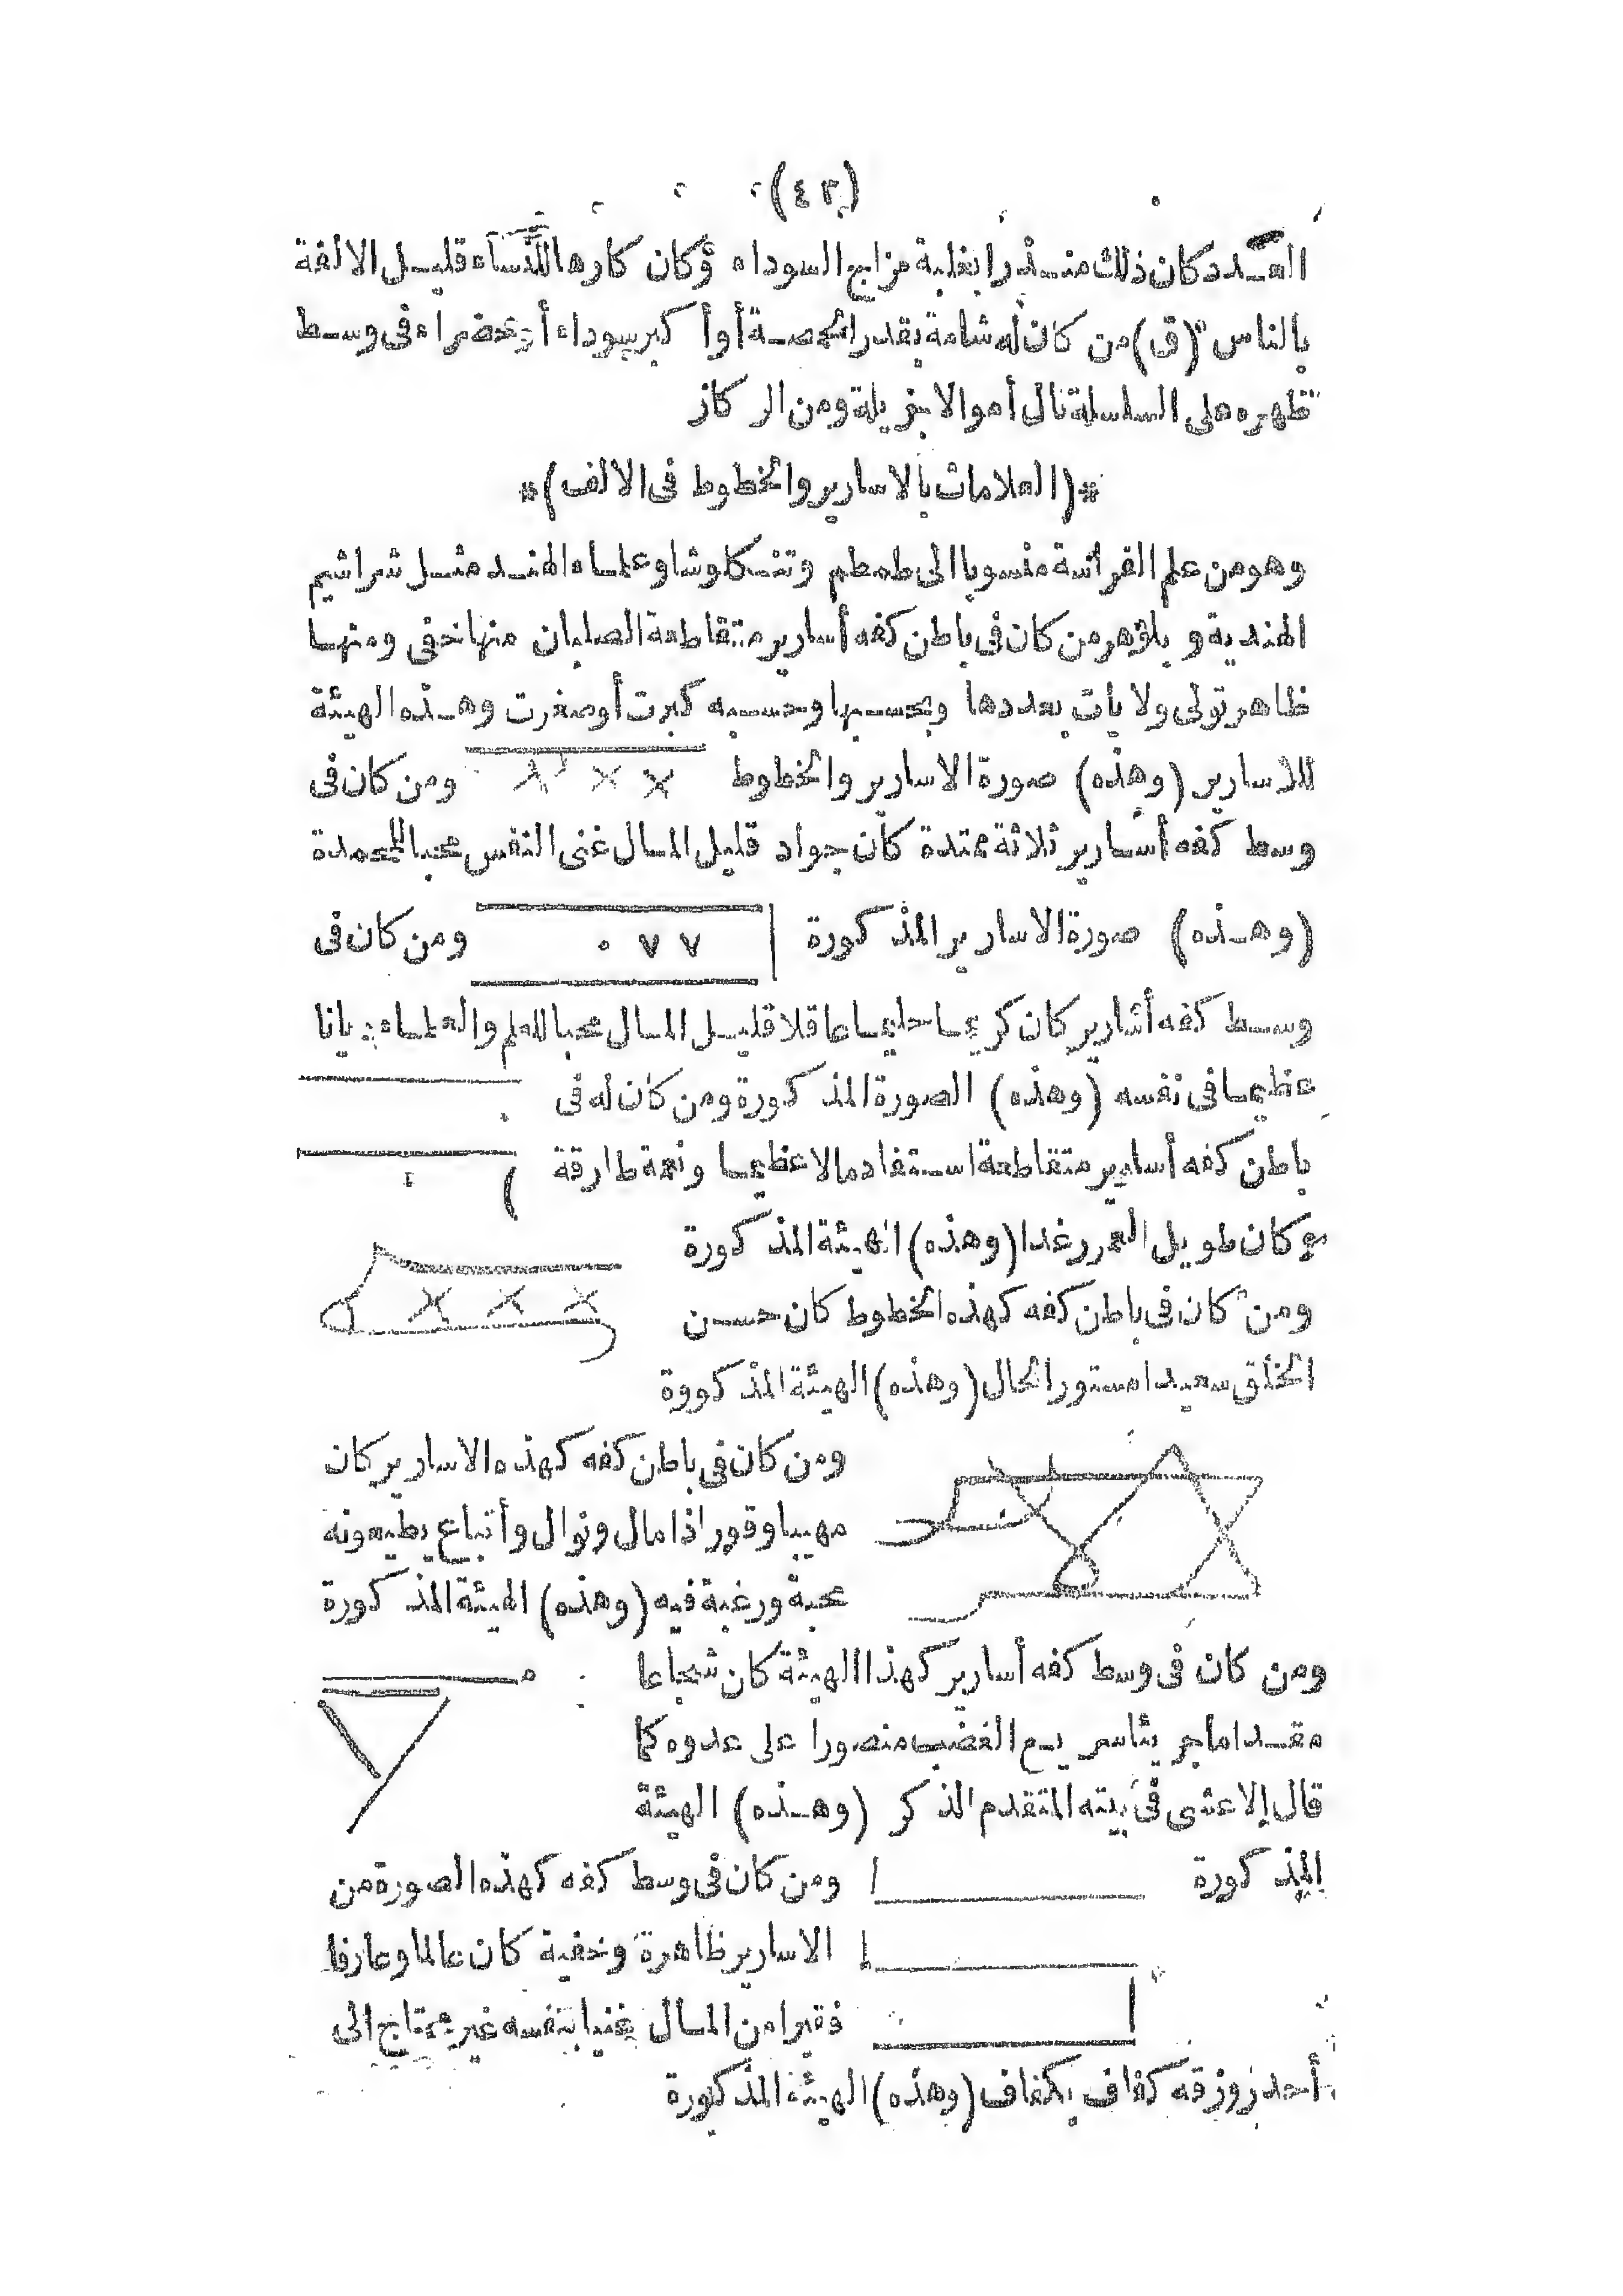 (٤٢)
العدد كان ذلك منذرا بغلبة مزاج السوداء وكان كارها للنساء قليل الالفة
بالناس (ق) من كان له شامة بقدر الحمصة أو أكبر سوداء أو خضراء فى وسط
ظهره على السلسلة نال أموالا جزيلة ومن الركاز
*(العلامات بالاسارير والخطوط فى الالف)*
وهو من علم الفراسة منسوبا الى طمطم وتنكلوشا وعلماء الهند مثل شراشيم
الهندية و من كان فى باطن كفه أسارير متقاطعة الصلبان منها خفى ومنها
ظاهر تولى ولايات بعددها وبحسبها وحسبه كبرت أو صغرت وهذه الهيئة
للاسارير (وهذه) صورة الاسارير والخطوط ومن كان فى
وسط كفه أسارير ثلاثة ممتدة كان جواد قليل المال غنى النفس محبا للمحمدة
(وهذه) صورة الاسارير المذكورة ٧ ٧ ٠ ومن كان فى
وسط كفه أسارير كان كريما حليما عاقلا قليل المال محبا للعلم والعلماء
عظيما فى نفسه (وهذه) الصورة المذكورة ومن كان له فى
باطن كفه أسارير متقاطعة استفاد مالا عظيما ونعمة طارقة
وكان طويل العمر رغدا (وهذه) الهيئة المذكورة
ومن كان فى باطن كفه كهذه الخطوط كان حسن
الخلق سعيدا مستور الحال (وهذه) الهيئة المذكووة
ومن كان فى باطن كفه كهذه الاسارير كان
مهيبا وقورا ذا مال ونوال وأتباع يطيعونه
محبة ورغبة فيه (وهذه) الهيئة المذكورة
ومن كان فى وسط كفه أسارير كهذا الهيئة كان شجاعا
مقداما جريئا سريع الغضب منصورا على عدوه كما
قال الاعشى فى بيته المتقدم الذكر (وهذه) الهيئة
المذكورة ومن كان فى وسط كفه كهذه الصورة من
الاسارير ظاهرة وخفية كان عالما وعارفا
فقيرا من المال غنيا بنفسه غير محتاج الى
أحد ورزقه كفاف بكفاف (وهذه) الهيئة المذكورة